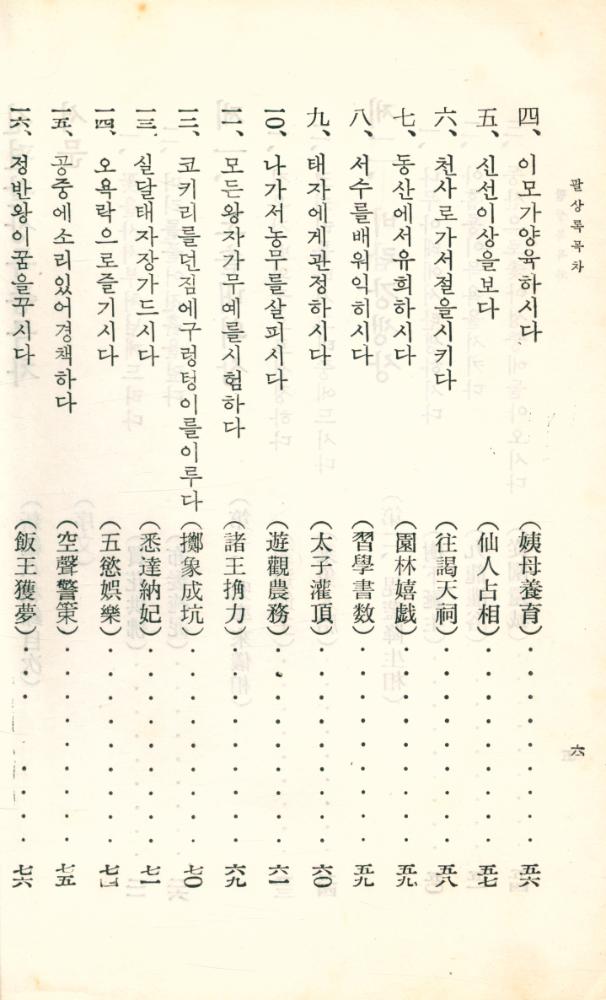 팔상록목차 六
四、이모가양육하시다(姨母養育)·········五六
五、신선이상을보다(仙人占相)·········五七
六、천사로가서절을시키다(往謁天祠)·········五八
七、동산에서유희하시다(園林嬉戱)·········五九
八、서수를배워익히시다(習學書数)·········五九
九、태자에게관정하시다(太子灌頂)·········六〇
一〇、나가서농무를살피시다(遊觀農務)·········六一
一一、모든왕자가무예를시험하다(諸王捔力)·········六九
一二、코키리를던짐에구렁텅이를이루다(擲象成坑)·········七〇
一三、실달태자장가드시다(悉達納妃)·········七一
一四、오욕락으로즐기시다(五慾娯樂)·········七四
一五、공중에소리있어경책하다(空聲警策)·········七五
一六、정반왕이꿈을꾸시다(飯王獲夢)·········七六